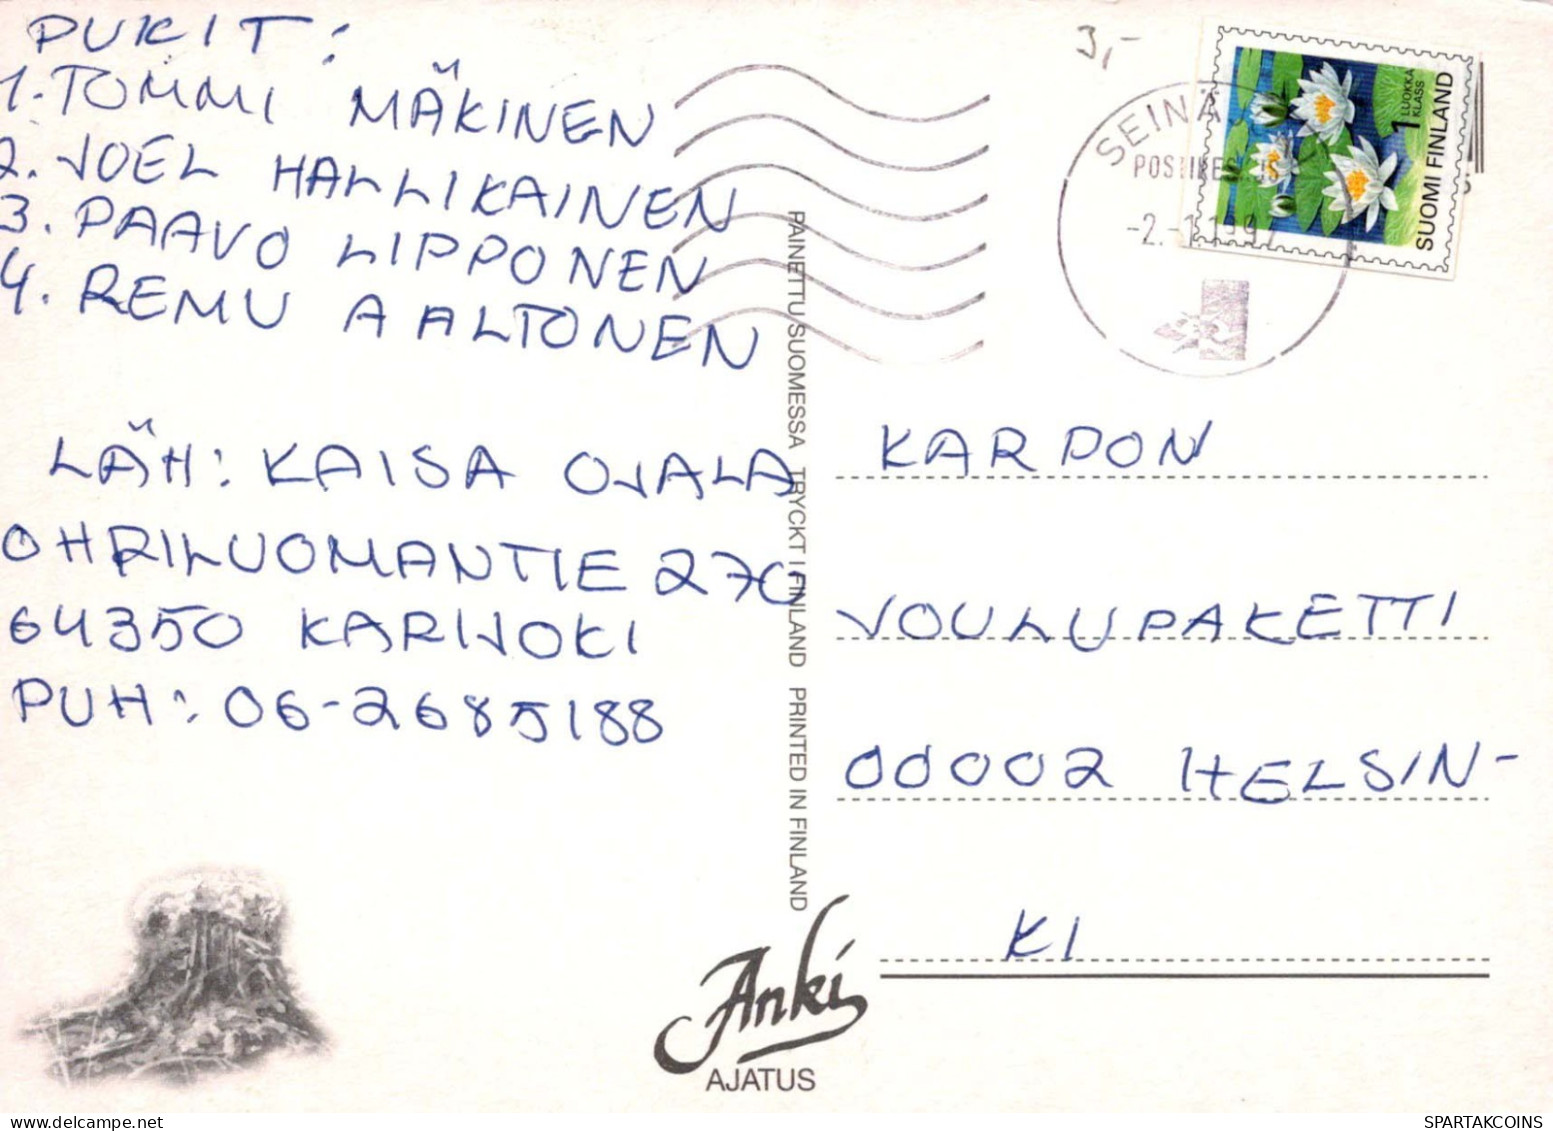 PUKIT:
1. TOMMI MÄKINEN
2. JOEL HALLIKAINEN
3. PAAVO LIPPONEN
4. REMU AALTONEN
LÄH: KAISA OJALA
OHRILUOMANTIE 270
64350 KARIJOKI
PUH: 06-2685188
PAINETTU SUOMESSA TRYCKT I FINLAND PRINTED IN FINLAND
3,-
SEINÄ
1 LUOKKA
KLASS
SUOMI FINLAND
KARPON
JOULUPAKETTI
00002 HELSIN-
KI
Anki
AJATUS
SPARTAKCOINS